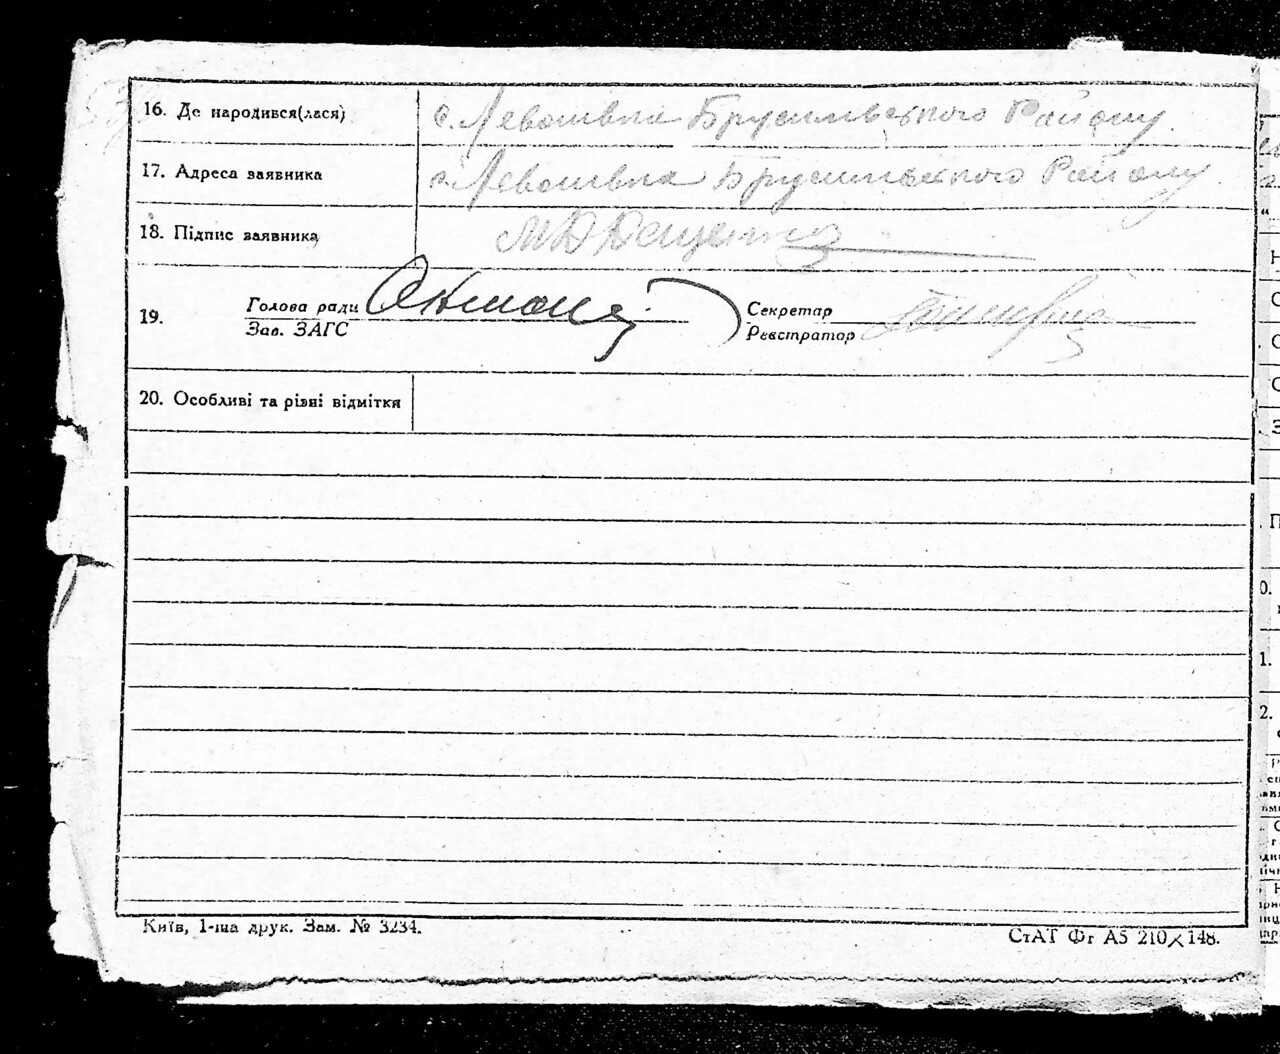 16. Де народився(лася) с. Левошвка Брусилівського Району
17. Адреса заявника с. Левошвка Брусилівського Району
18. Підпис заявника
19. Голова ради Секретар
Зав. ЗАГС Реєстратор
20. Особливі та різні відмітки
Київ, 1-ша друк. Зам. № 3234.
СтАТ Фг А5 210×148.